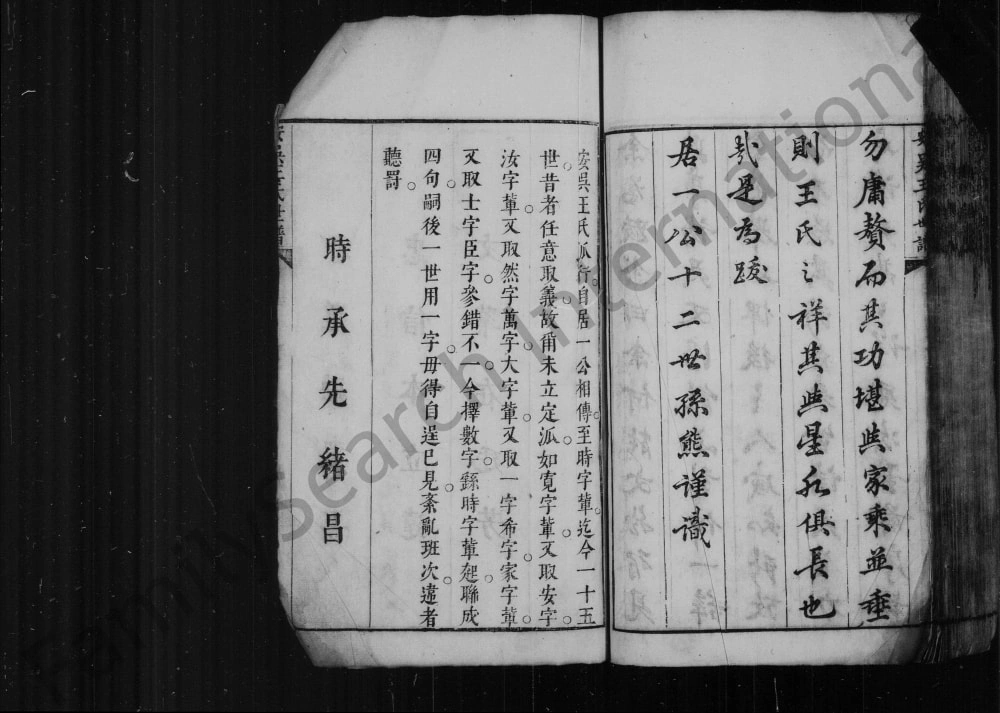 勿庸贅而其功堪與家乘並垂
則王氏之祥其與星永俱長也
哉是為跋
居一公十二世孫熊謹識
安吳王氏世譜
安吳王氏派行自居一公相傳至時字輩迄今一十五
世昔者任意取義故爾未立定派如寬字輩又取安字
汝字輩又取然字萬字大字輩又取一字希字家字輩
又取士字臣字參錯不一今擇數字繇時字輩起聯成
四句嗣後一世用一字毋得自逞已見紊亂班次違者
聽罰
時承先緒昌
安吳王氏世譜
FamilySearch International